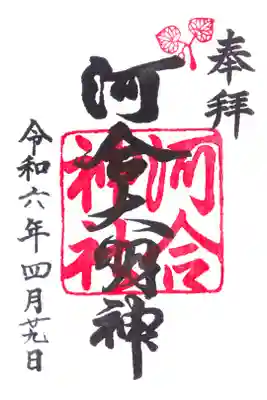 奉拝
河合大明神
河合
神社
令和六年四月廿九日